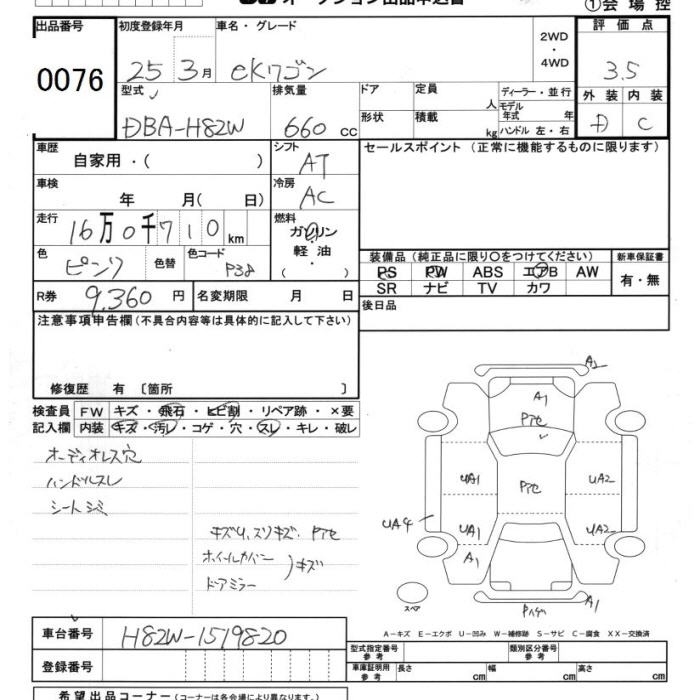 オークション出品申込書
①会場控
出品番号 初度登録年月 車名・グレード 2WD・4WD 評価点
0076 25 3月 eKワゴン 3.5
型式 排気量 ドア 定員 人 ディーラー・並行 外装 内装
DBA-H82W 660 cc 形状 積載 kg モデル年式 年 ハンドル 左・右 D C
車歴 自家用・( ) シフト AT セールスポイント(正常に機能するものに限ります)
車検 年 月(日) 冷房 AC
走行 16万0千710km 燃料 ガソリン 軽油 ( ・ )
色 ピンク 色替 色コード P38 装備品(純正品に限り○をつけてください) 新車保証書
PS PW ABS エアB AW 有・無
SR ナビ TV カワ
R券 9,360円 名変期限 月 日 後日品
注意事項申告欄(不具合内容等は具体的に記入して下さい)
修復歴 有 〔箇所 〕
検査員 FW キズ・飛石・ヒビ割・リペア跡・×要
記入欄 内装 キズ・汚レ・コゲ・穴・スレ・キレ・破レ
オーディオレス穴
ハンドルスレ
シートシミ
キズ有、スリキズ、Pアセ
ホイールカバー
ドアミラー
)キズ
A2
A1
Pアセ
UA1 UA2
Pアセ
UA4 UA1 UA2
A1
A1
スペア
A-キズ E-エクボ U-凹み W-補修跡 S-サビ C-腐食 XX-交換済
車台番号 H82W-1519820
型式指定番号 参考 類別区分番号 参考
登録番号 車庫証明用 参考 長さ cm 幅 cm 高さ cm
希望出品コーナー(コーナーは各会場により異なります。)